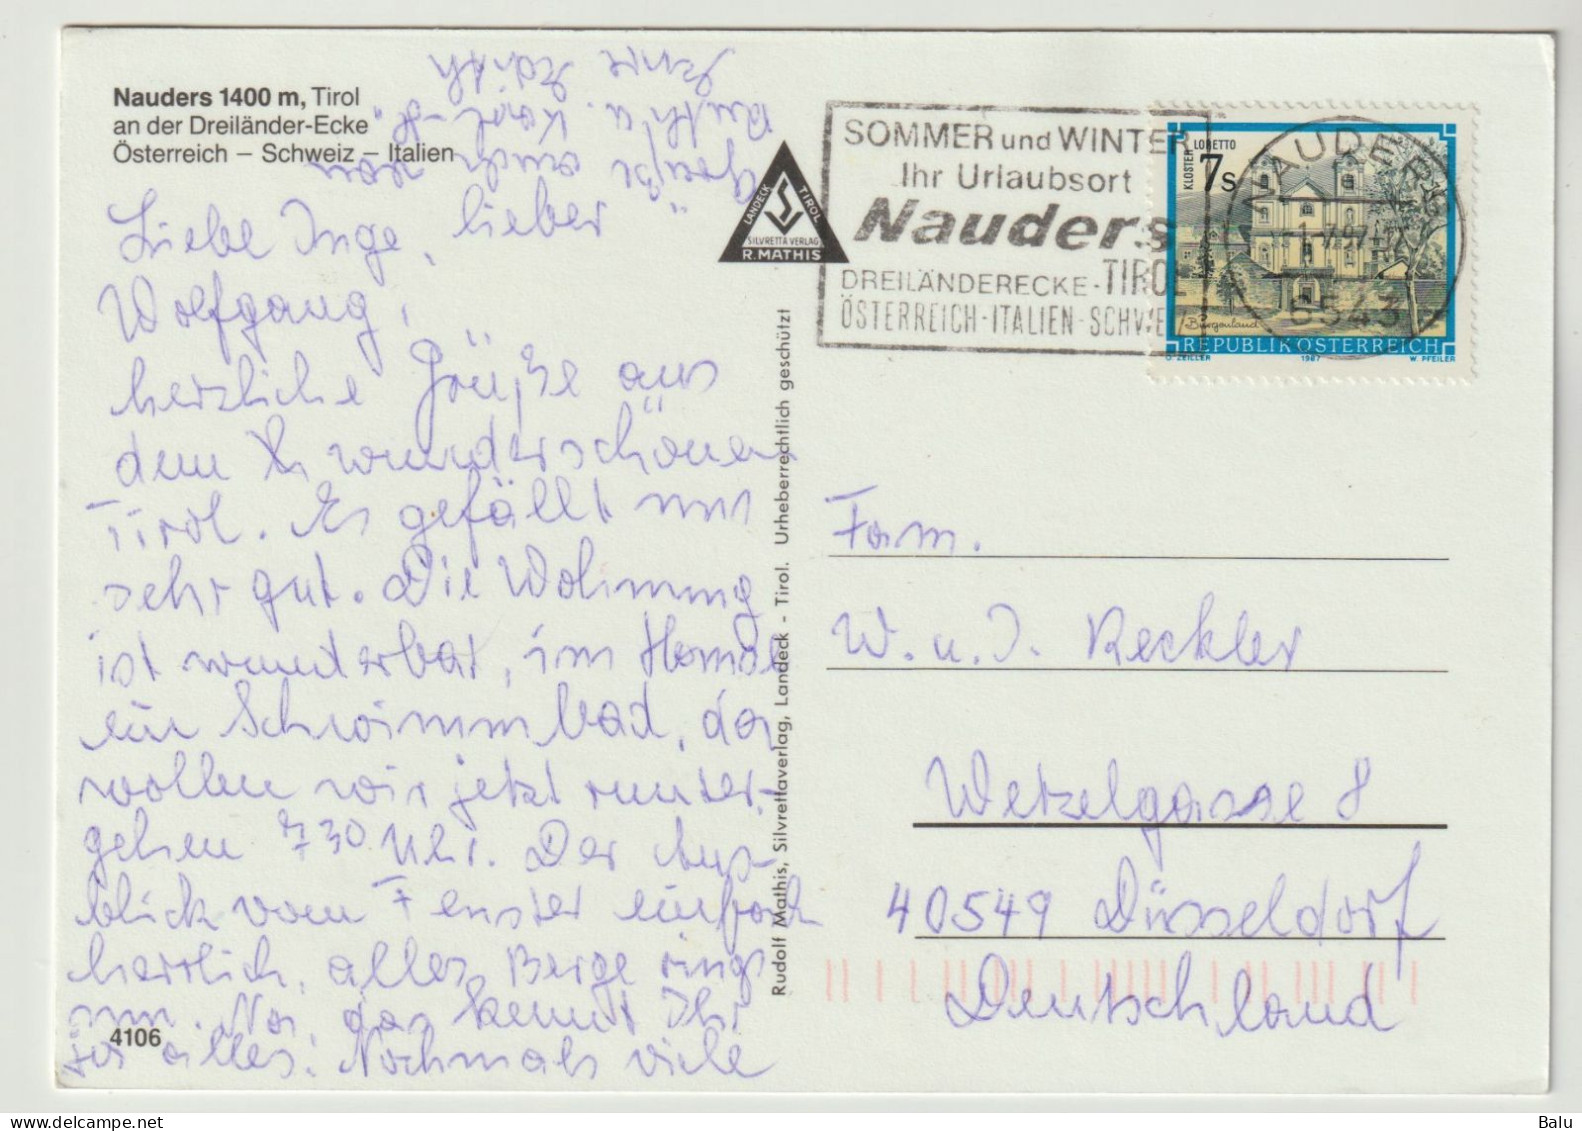 Nauders 1400 m, Tirol
an der Dreiländer-Ecke
Österreich – Schweiz – Italien
Liebe Inge, lieber
Wolfgang,
herzliche Grüße aus
dem wunderschönen
Tirol. Es gefällt uns
sehr gut. Die Wohnung
ist wunderbar, im Hause
ein Schwimmbad, da
wollen wir jetzt runter-
gehen 730 Uhr. Der Aus-
blick vom Fenster einfach
herrlich, alles Berge rings
um. Na, das kennt Ihr
ja alles. Nochmals viele
Grüße auch von
Ruth u. Karl-H.
Eure Edith
4106
LANDECK TIROL
SILVRETTA VERLAG
R. MATHIS
Rudolf Mathis, Silvrettaverlag, Landeck - Tirol. Urheberrechtlich geschützt
SOMMER und WINTER
Ihr Urlaubsort
Nauders
DREILÄNDERECKE-TIROL
ÖSTERREICH-ITALIEN-SCHWEI
KLOSTER LORETTO
7s
Burgenland
REPUBLIK ÖSTERREICH
O. ZEILLER 1987 W. PFEILER
NAUDERS
6543
Fam.
W. u. I. Reckler
Wetzelgasse 8
40549 Düsseldorf
Deutschland
Balu